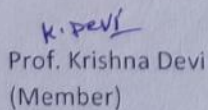 K. Devi
Prof. Krishna Devi
(Member)